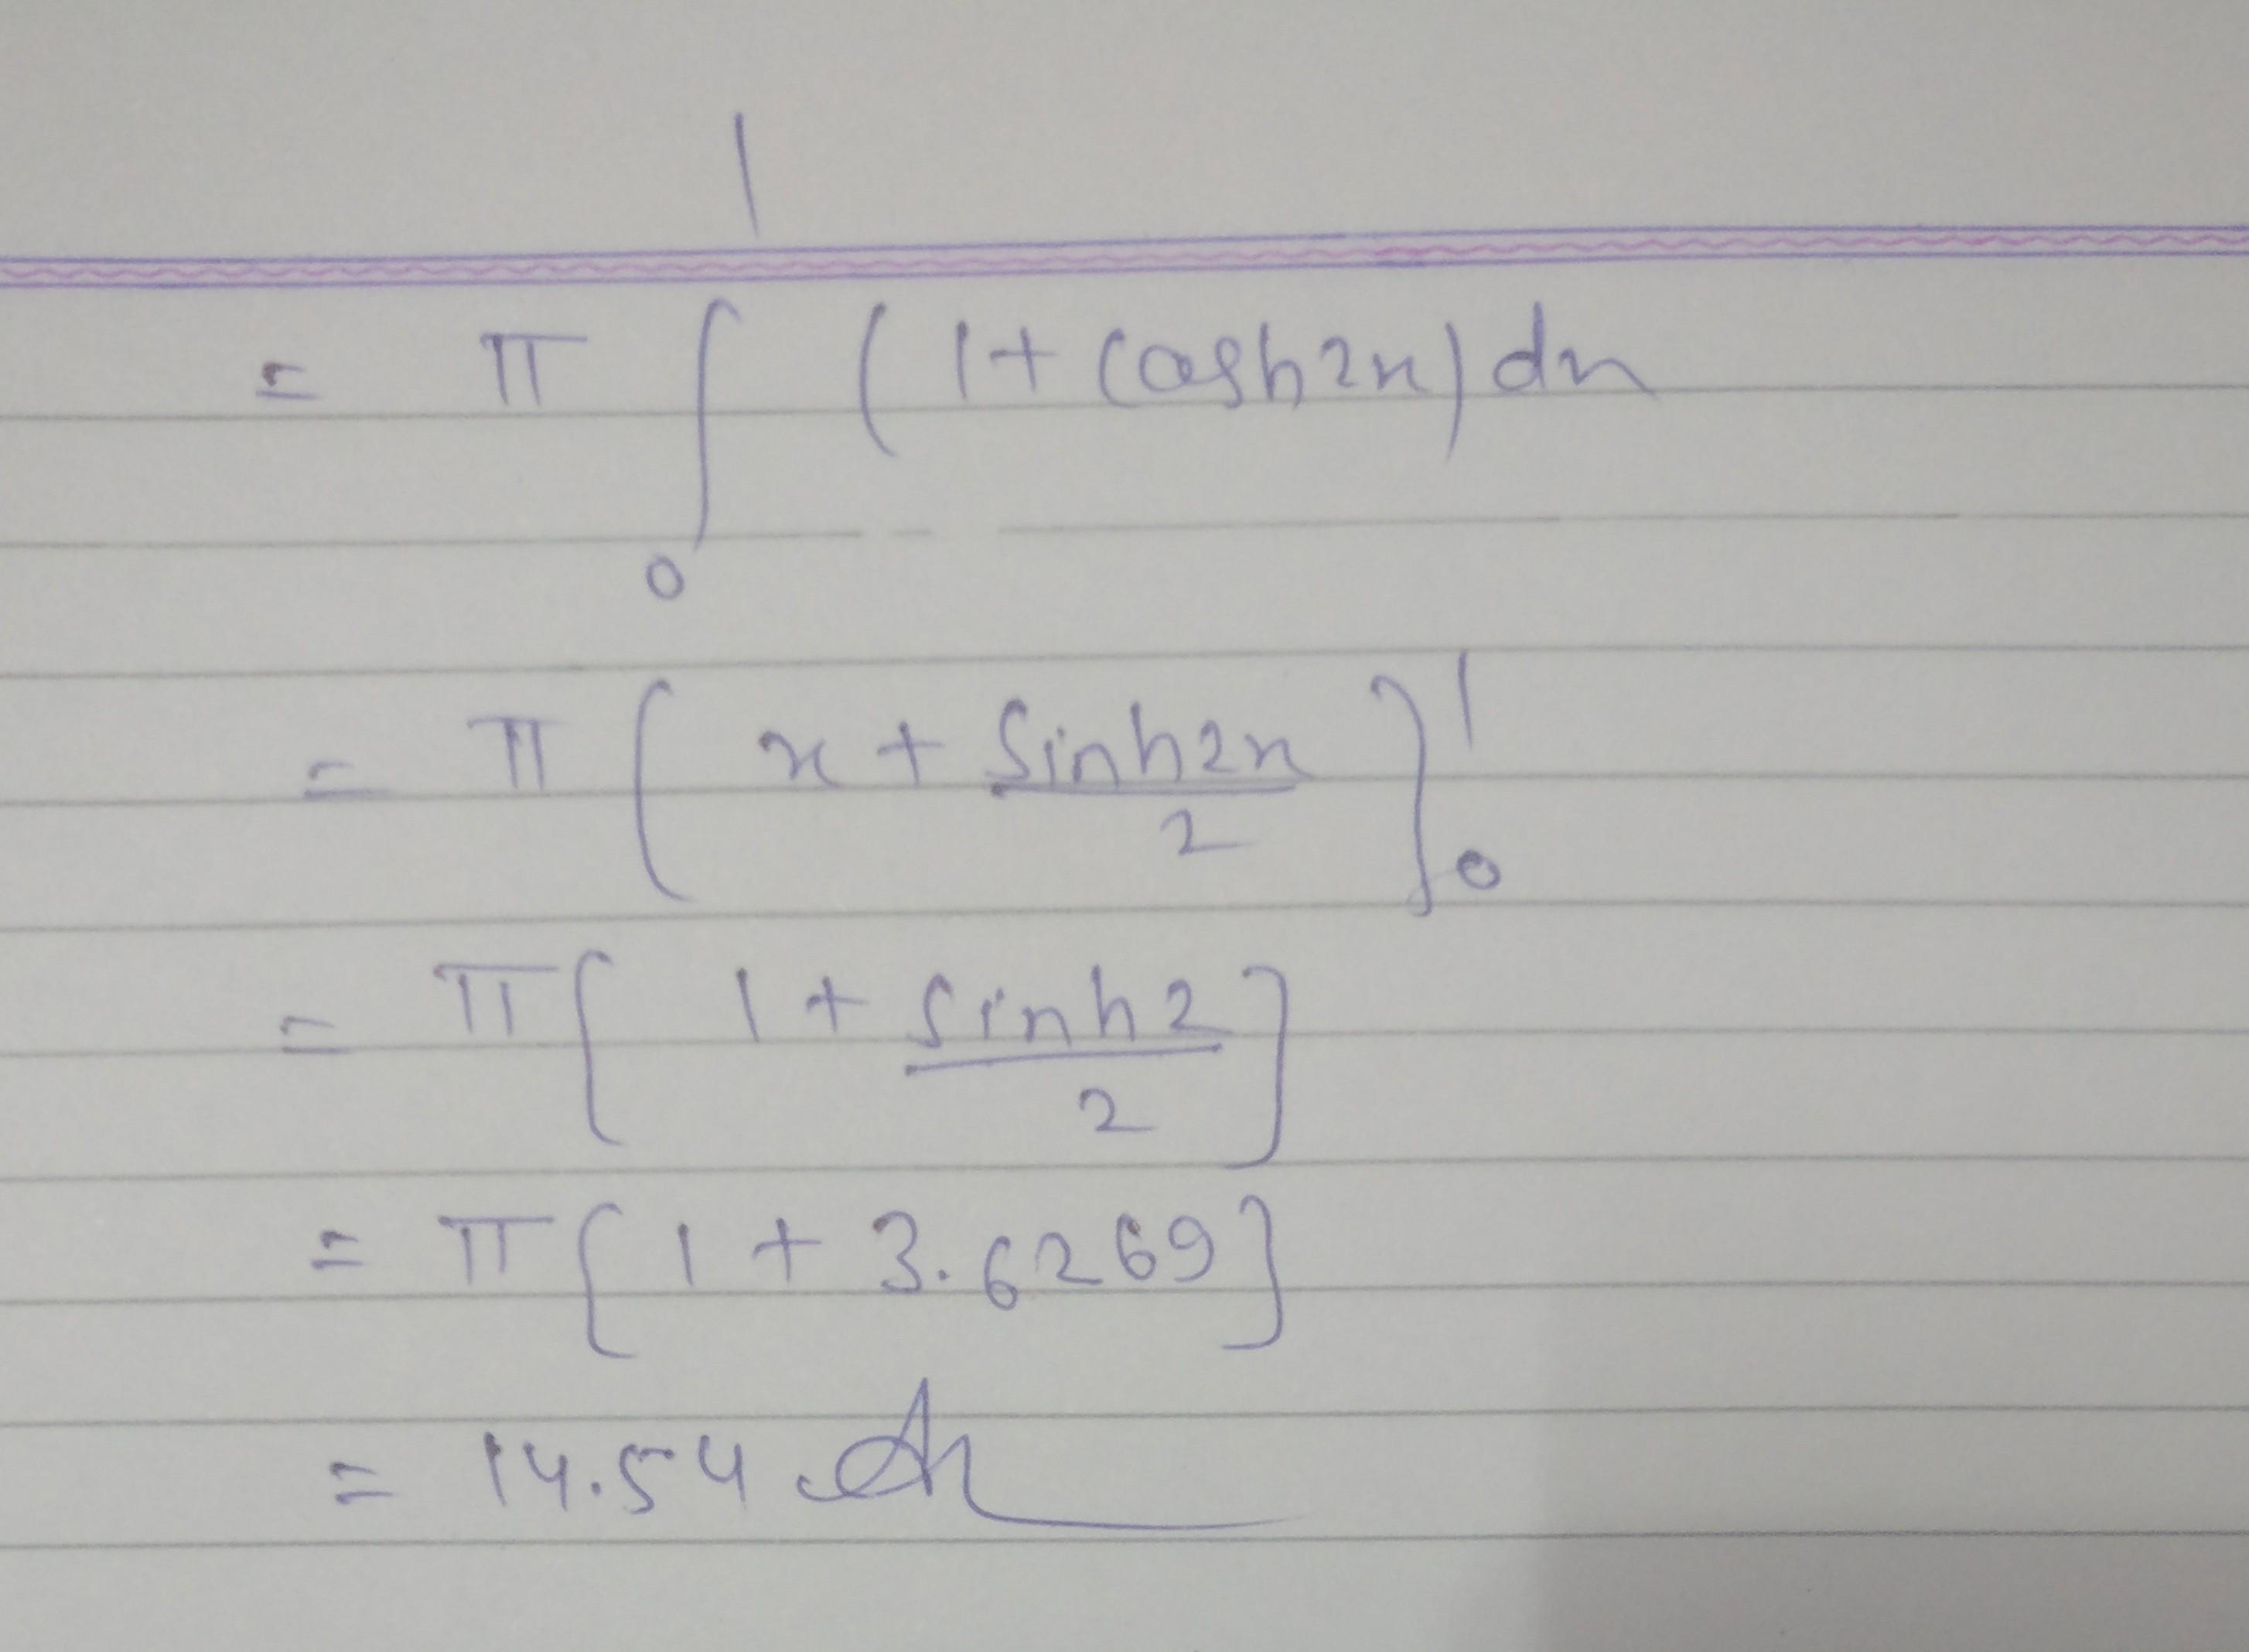 = π ∫₀¹ (1 + cosh2x) dx
= π [ x + sinh2x/2 ]₀¹
= π [ 1 + sinh2/2 ]
= π [ 1 + 3.6269 ]
= 14.54